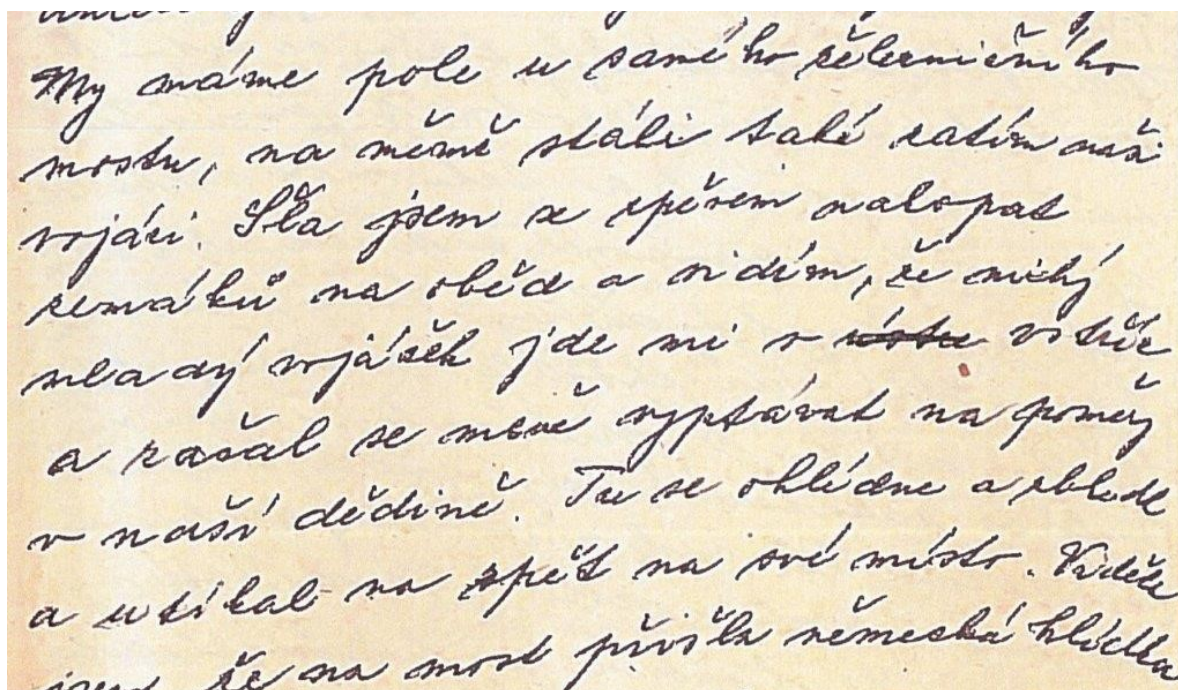 My máme pole u samého želesničního
mostu, na němě stáli také zatím naši
vojáci. Šla jsem se zpěvem nakopat
zemáků na oběd a vidím, že nichý
mladý vojáček jde mi v ústu vstříc
a začal se mně vyptávat na poměry
v naší dědině. Tu se ohlédne a zbledl
a utíkal na zpět na své místo. Viděla
jsem, že na most přišla německá hlídka